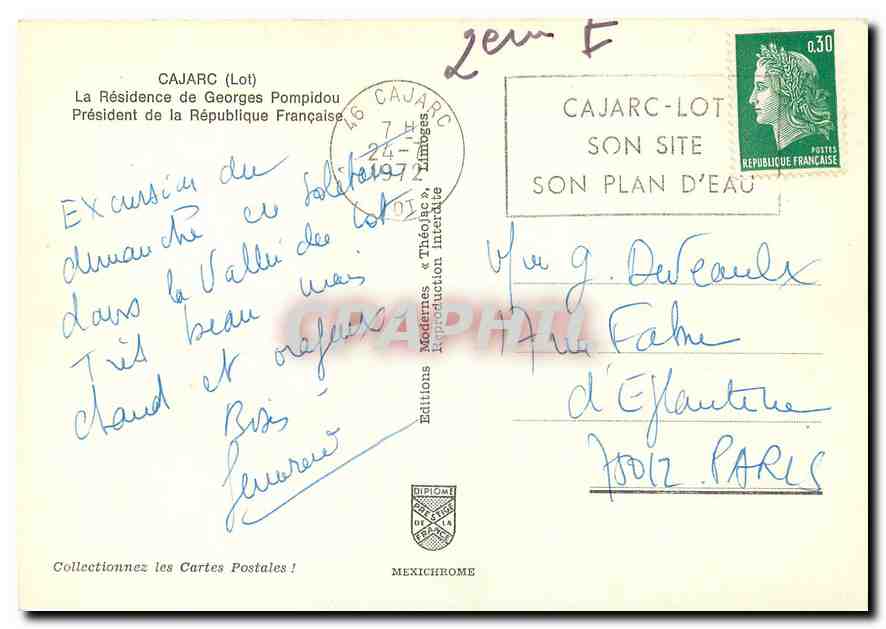 2em F
CAJARC (Lot)
La Résidence de Georges Pompidou
Président de la République Française
46 CAJARC
7 H
24-
1972
LOT
CAJARC-LOT
SON SITE
SON PLAN D'EAU
0,30
POSTES
REPUBLIQUE FRANÇAISE
Excursion du
dimanche en solitaire
dans la Vallée du Lot
Très beau mais
chaud et orageux
Bises
Editions Modernes « Théojac », Limoges
Reproduction interdite
CPAPHIL
G. Deveaulx
7 rue Fabre
d'Eglantine
75012 PARIS
DIPLOME
PRESTIGE
DE LA
FRANCE
Collectionnez les Cartes Postales !
MEXICHROME